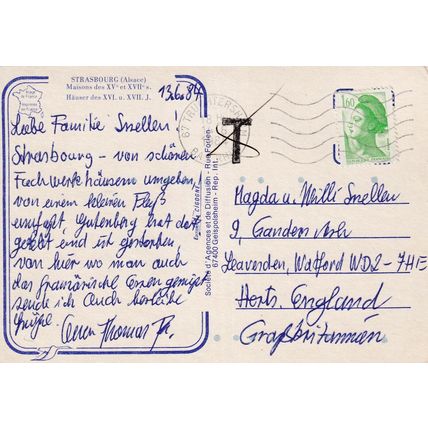 STRASBOURG (Alsace)
Maisons des XVe et XVIIe s.
Häuser des XVI. u. XVII. J.
13.6.84
Liebe Familie Snellen!
Strasbourg - von schönen
Fachwerkhäusern umgeben,
von einem kleinen Fluß
umfaßt, Gutenberg hat dort
gelebt und ist gestorben,
von hier wo man auch
das französische Essen genießt
sende ich Euch herzliche
Grüße!
Euer Thomas
Société d'Agences et de Diffusion - Rue Forlen
67400 Geispolsheim - Rep. Int.
T
1,60
Magda u. Willi Snellen
9, Ganders Ash
Leavesden, Watford WD2-7HE
Herts. England
Großbritannien